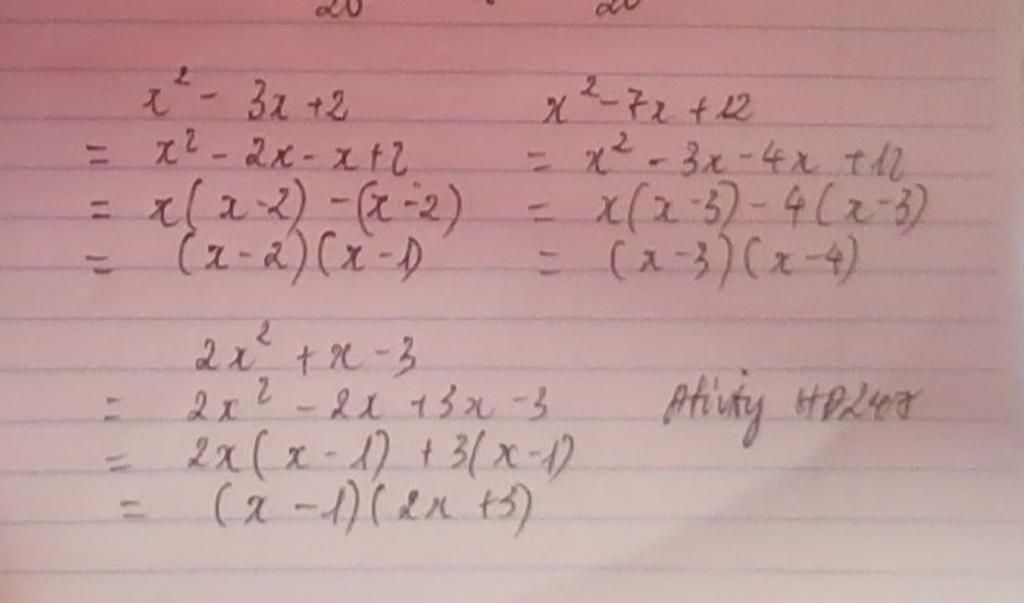 20 20
x² - 3x + 2
= x² - 2x - x + 2
= x(x - 2) - (x - 2)
= (x - 2)(x - 1)
x² - 7x + 12
= x² - 3x - 4x + 12
= x(x - 3) - 4(x - 3)
= (x - 3)(x - 4)
2x² + x - 3
= 2x² - 2x + 3x - 3
= 2x(x - 1) + 3(x - 1)
= (x - 1)(2x + 3)